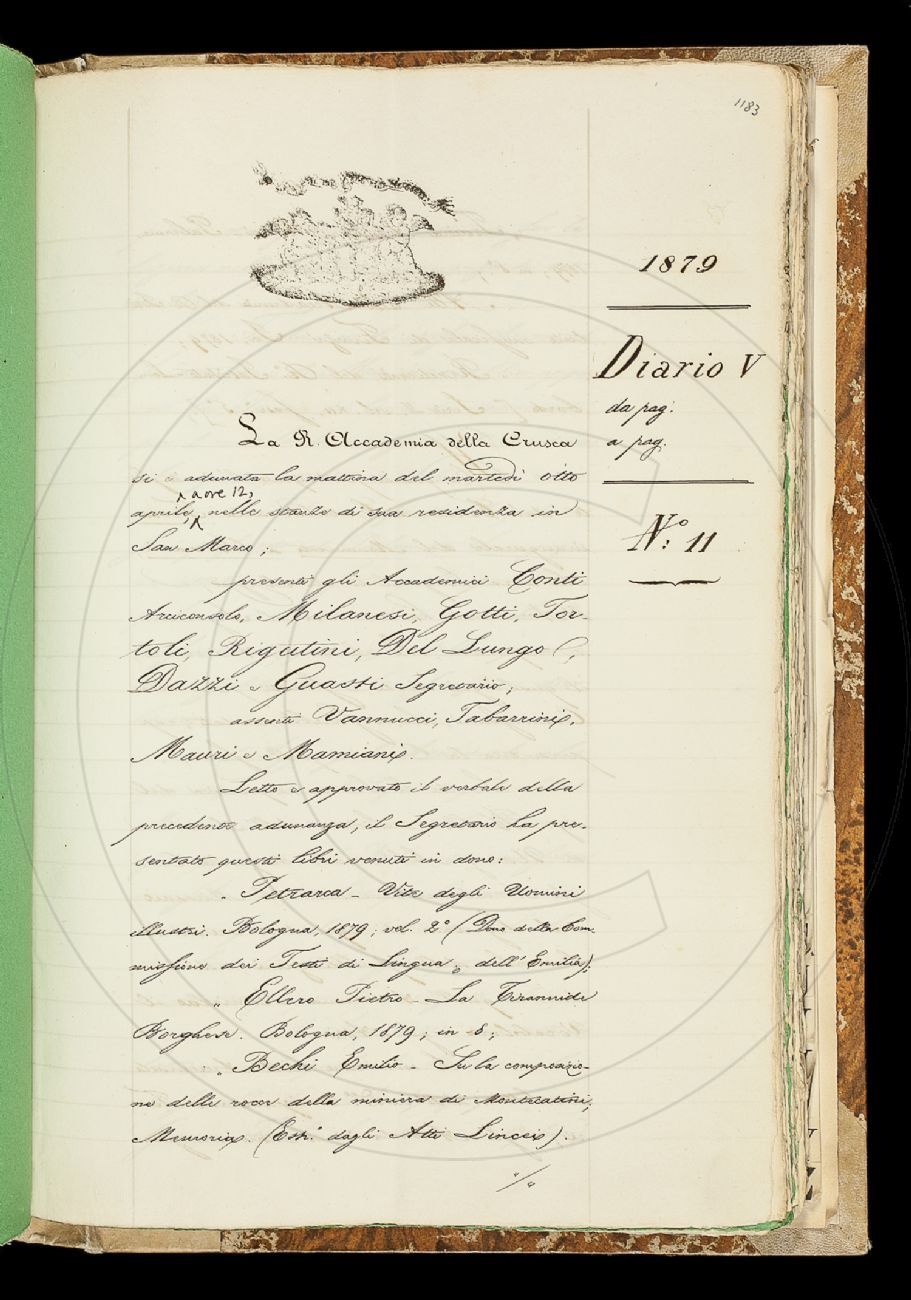 1183
1879
Diario V
da pag:
a pag.
N.º 11
La R. Accademia della Crusca
si è adunata la mattina del martedì otto
a ore 12,
aprile, nelle stanze di sua residenza in
San Marco;
presenti gli Accademici Conti
Arciconsolo, Milanesi, Gotti, Tor-
toli, Rigutini, Del Lungo,
Dazzi e Guasti Segretario;
assenti Vannucci, Tabarrini,
Mauri e Mamiani.
Letto e approvato il verbale della
precedente adunanza, il Segretario ha pre-
sentato questi libri venuti in dono:
Petrarca - Vite degli Uomini
illustri. Bologna, 1879; vol. 2º (Dono della Com-
missione dei Testi di Lingua, dell'Emilia);
" Ellero Pietro - La Tirannide
Borghese. Bologna, 1879; in 8;
" Bechi Emilio - Sulla composizio-
ne delle rocce della miniera di Montecatini;
Memoria. (Estr. dagli Atti Lincei).
"/"